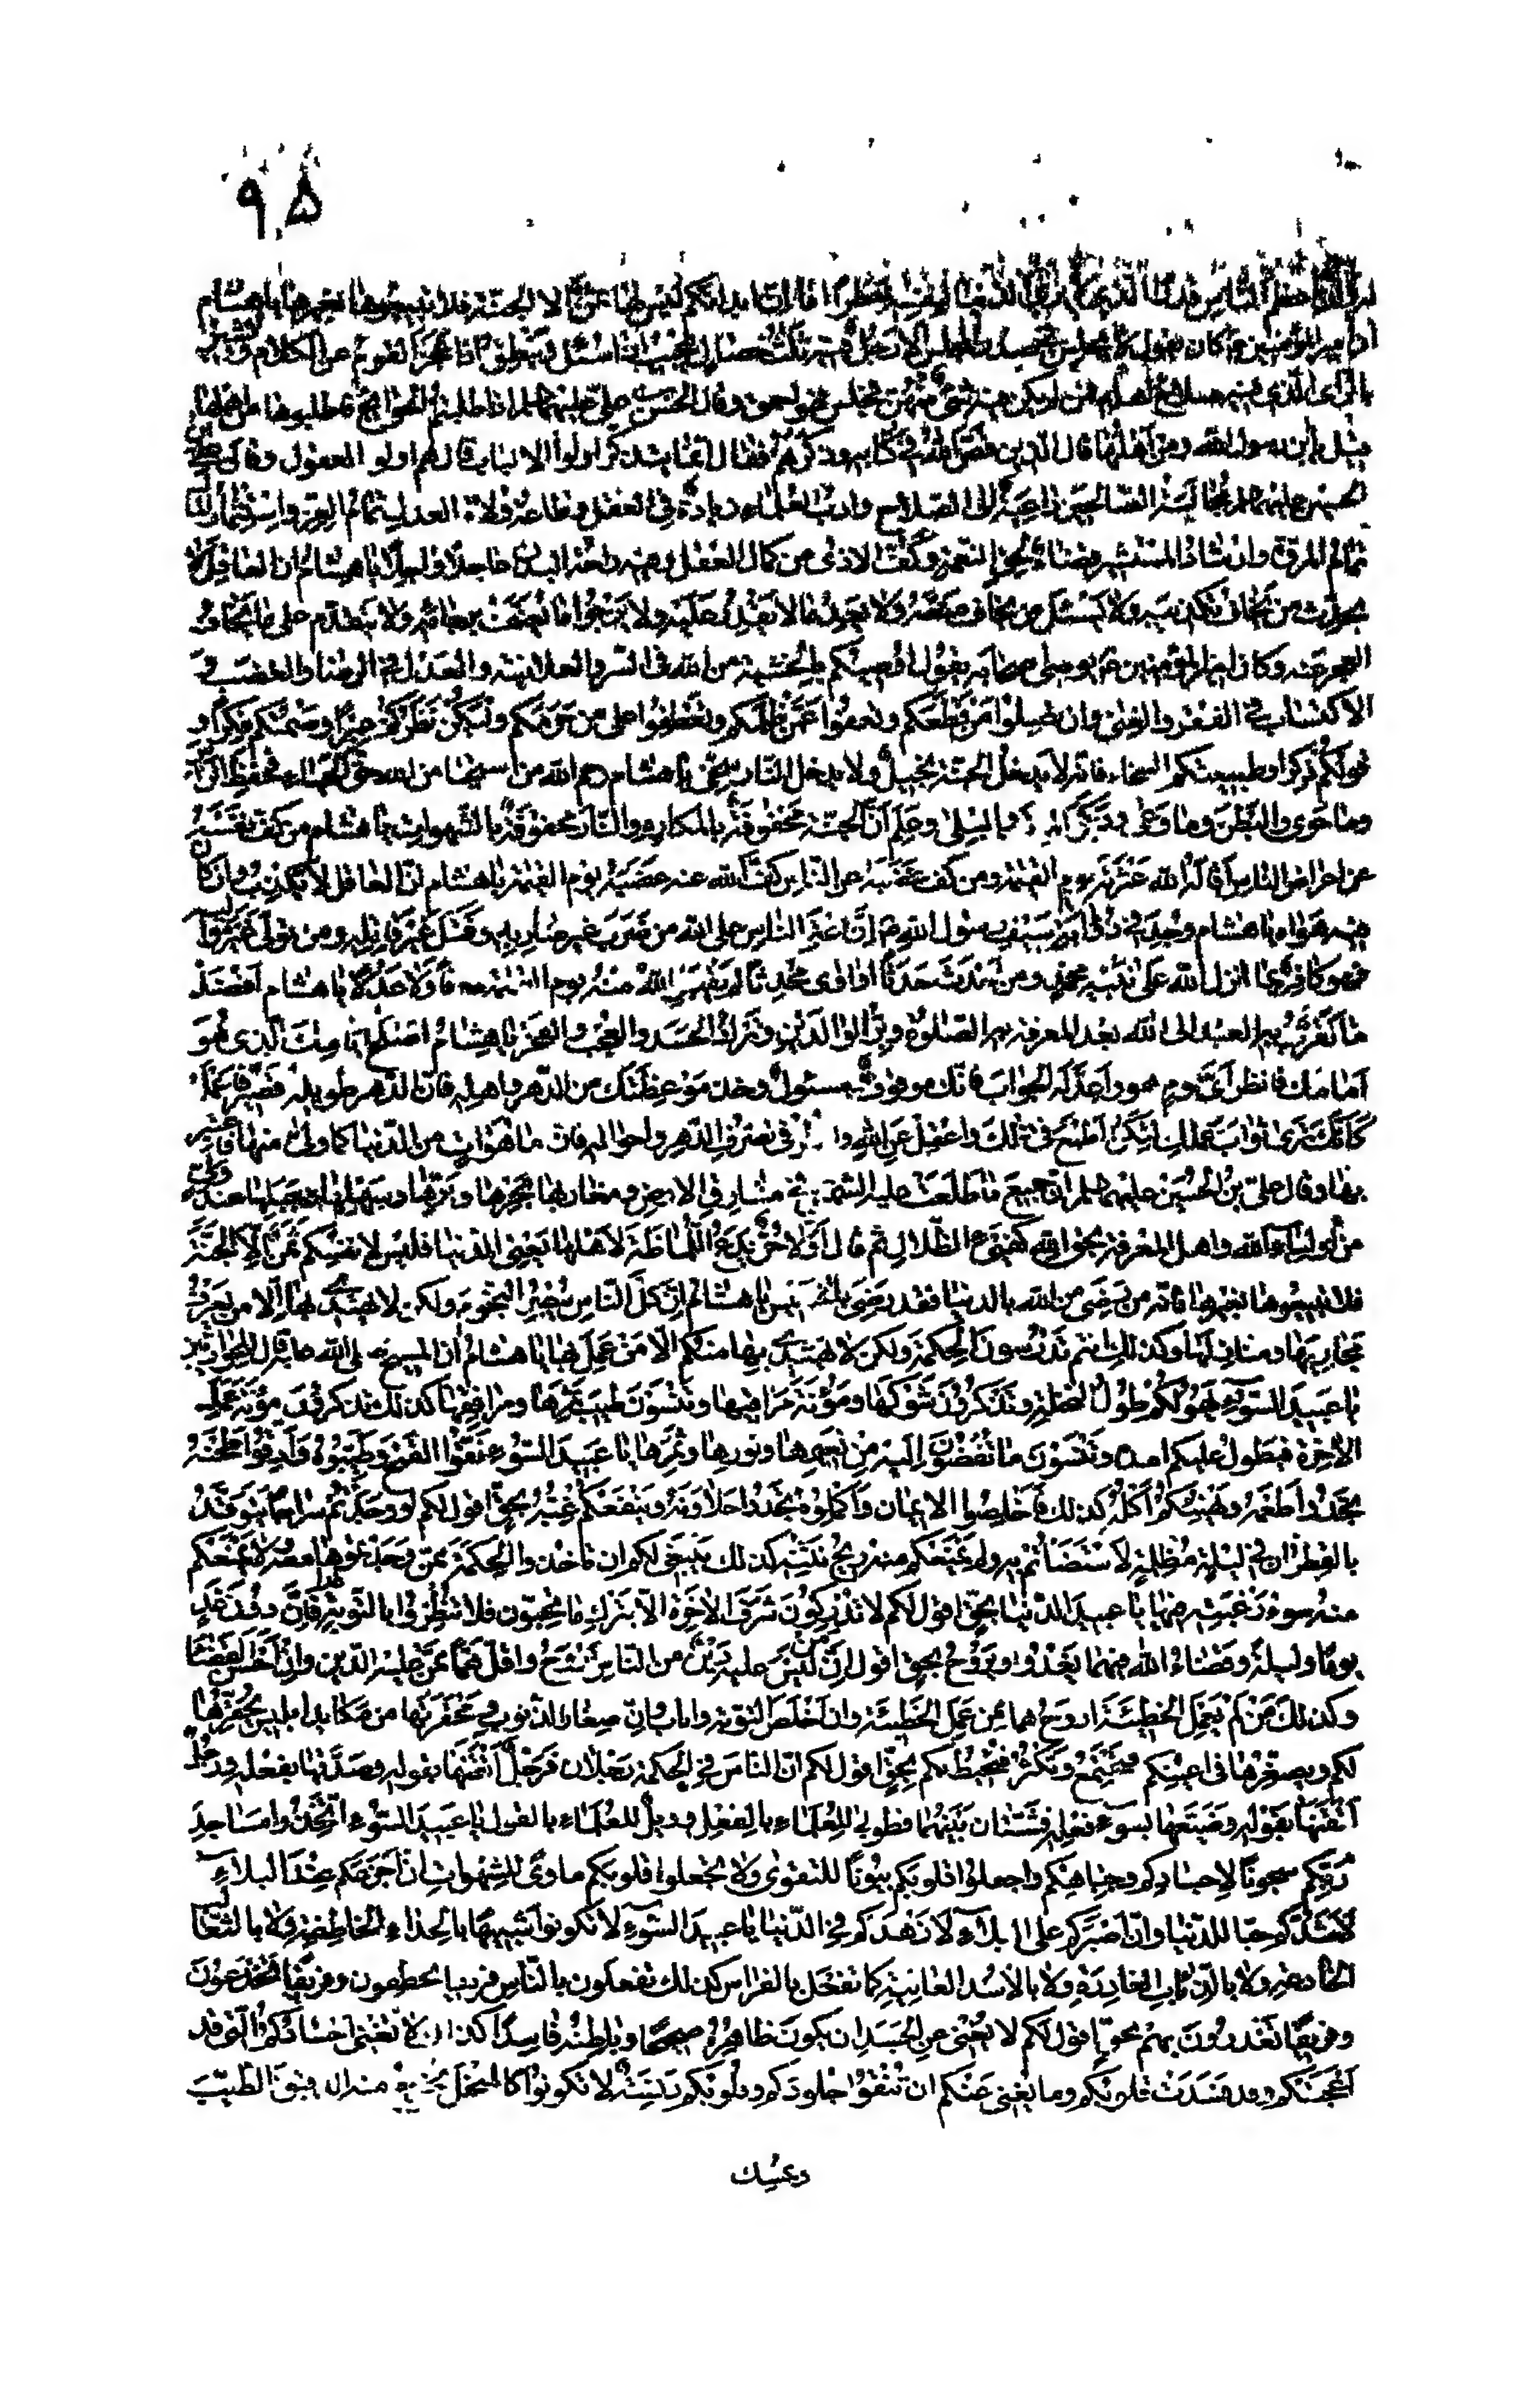 ٩٥
الناس قدرا الذي لا يرى الدنيا لنفسه خطرا اما ان ابدانكم ليس لها ثمن الا الجنة فلا تبيعوها بغيرها يا هشام
ان امير المؤمنين ع كان يقول لا يجلس في صدر المجلس الا رجل فيه ثلث خصال يجيب اذا سئل وينطق اذا عجز القوم عن الكلام ويشير
بالراى الذي فيه صلاح اهله فمن لم يكن فيه شئ منهن فجلس فهو احمق وقال الحسن بن على عليهما السلم اذا طلبتم الحوائج فاطلبوها من اهلها
قيل يا بن رسول الله ومن اهلها قال الذين قص الله في كتابه وذكرهم فقال انما يتذكر اولوا الالباب قال هم اولو العقول وقال على بن
الحسين عليهما السلم مجالسة الصالحين داعية الى الصلاح وادب العلماء زيادة في العقل وطاعة ولاة العدل تمام العز واستثمار المال
تمام المروة وارشاد المستشير قضاء لحق النعمة وكف الاذى من كمال العقل وفيه راحة البدن عاجلا واجلا يا هشام ان العاقل لا
يحدث من يخاف تكذيبه ولا يسئل من يخاف منعه ولا يعد ما لا يقدر عليه ولا يرجوا ما يعنف برجائه ولا يتقدم على ما يخاف
العجز عنه وكان امير المؤمنين ع يوصى اصحابه يقول اوصيكم بالخشية من الله في السر والعلانية والعدل في الرضا والغضب و
الاكتساب في الفقر والغنى وان تصلوا من قطعكم وتعفوا عمن ظلمكم وتعطفوا على من حرمكم وليكن نظركم عبرا وصمتكم فكرا و
قولكم ذكرا وطبيعتكم السخاء فانه لا يدخل الجنة بخيل ولا يدخل النار سخى يا هشام رحم الله من استحيا من الله حق الحياء فحفظ الراس
وما حوى والبطن وما وعى وذكر الموت والبلى وعلم ان الجنة محفوفة بالمكاره والنار محفوفة بالشهوات يا هشام من كف نفسه
عن اعراض الناس اقاله الله عثرته يوم القيمة ومن كف غضبه عن الناس كف الله عنه غضبه يوم القيمة يا هشام ان العاقل لا يكذب وان كان
فيه هواه يا هشام وجد في ذؤابة سيف رسول الله ص ان اعتى الناس على الله من ضرب غير ضاربه وقتل غير قاتله ومن تولى غير مواليه
فهو كافر بما انزل الله على نبيه محمد ومن احدث حدثا او اوى محدثا لم يقبل الله منه يوم القيمة صرفا ولا عدلا يا هشام افضل
ما تقرب به العبد الى الله بعد المعرفة به الصلوة وبر الوالدين وترك الحسد والعجب والفخر يا هشام اصلح ايامك الذي هو
امامك فانظر اي يوم هو واعد له الجواب فانك موقوف ومسئول وخذ موعظتك من الدهر واهله فان الدهر طويله قصيرة فاعمل
كانك ترى ثواب عملك لتكن اطمع في ذلك واعقل عن الله وانظر في تصرف الدهر واحواله فان ما هو ات من الدنيا كما ولى منها فاعتبر
بها وقال على بن الحسين عليهما السلم ان جميع ما طلعت عليه الشمس في مشارق الارض ومغاربها بحرها وبرها وسهلها وجبلها عند ولى
من اولياء الله واهل المعرفة بحق الله كفئ الظلال ثم قال اولا حر يدع اللماظة لاهلها يعنى الدنيا فليس لانفسكم ثمن الا الجنة
فلا تبيعوها بغيرها فانه من رضى من الله بالدنيا فقد رضى بالخسيس يا هشام ان كل الناس يبصر النجوم ولكن لا يهتدى بها الا من يعرف
مجاريها ومنازلها وكذلك انتم تدرسون الحكمة ولكن لا يهتدى بها منكم الا من عمل بها يا هشام ان المسيح صلى الله عليه قال للحواريين
يا عبيد السوء يهولكم طول النخلة وتذكرون شوكها ومؤنة مراقيها وتنسون طيب ثمرها ومرافقها كذلك تذكرون مؤنة عمل
الاخرة فيطول عليكم امده وتنسون ما تفضون اليه من نعيمها ونورها وثمرها يا عبيد السوء نقوا القمح وطيبوه وادقوا طحنه
تجدوا طعمه ويهنئكم اكله كذلك فاخلصوا الايمان واكملوه تجدوا حلاوته وينفعكم غبه بحق اقول لكم لو وجدتم سراجا يتوقد
بالقطران في ليلة مظلمة لاستضأتم به ولم يمنعكم منه ريح نتنه كذلك ينبغى لكم ان تاخذوا الحكمة ممن وجدتموها معه ولا يمنعكم
منه سوء رغبته فيها يا عبيد الدنيا بحق اقول لكم لا تدركون شرف الاخرة الا بترك ما تحبون فلا تنظروا بالتوبة غدا فان دون غد
يوما وليلة وقضاء الله فيهما يغدوا ويروح بحق اقول لكم ان من ليس عليه دين من الناس اروح واقل هما ممن عليه الدين وان احسن القضاء
وكذلك من لم يعمل الخطيئة اروح هما ممن عمل الخطيئة وان اخلص التوبة واناب وان صغار الذنوب ومحقراتها من مكايد ابليس يحقرها
لكم ويصغرها في اعينكم فتجتمع وتكثر فتحيط بكم بحق اقول لكم ان الناس في الحكمة رجلان فرجل اتقنها بقوله وصدقها بفعله ورجل
اتقنها بقوله وضيعها بسوء فعله فشتان بينهما فطوبى للعلماء بالفعل وويل للعلماء بالقول يا عبيد السوء اتخذوا مساجد
ربكم سجونا لاجسادكم وجباهكم واجعلوا قلوبكم بيوتا للتقوى ولا تجعلوا قلوبكم ماوى للشهوات ان اجزعكم عند البلاء
لاشدكم حبا للدنيا وان اصبركم على البلاء لازهدكم في الدنيا يا عبيد السوء لا تكونوا شبيها بالحداء الخاطفة ولا بالثعالب
الخادعة ولا بالذئاب الغادرة ولا بالاسد العاتية كما تفعل بالفراس كذلك تفعلون بالناس فريقا تخطفون وفريقا تخدعون
وفريقا تغدرون بهم بحق اقول لكم لا يغنى عن الجسد ان يكون ظاهره صحيحا وباطنه فاسدا كذلك لا تغنى اجسادكم التي قد
اعجبتكم وقد فسدت قلوبكم وما يغنى عنكم ان تنقوا جلودكم وقلوبكم دنسة لا تكونوا كالمنخل يخرج منه الدقيق الطيب
ويمسك